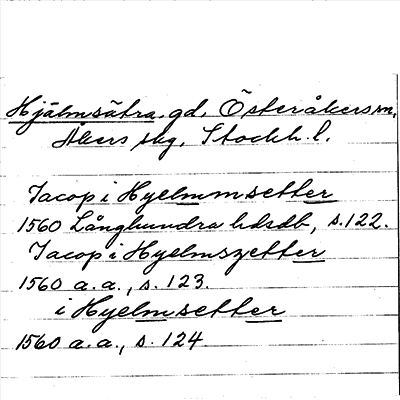 Hjälmsätra, gd, Österåkers sn,
Åkers skg, Stockh. l.
Jacop i Hyelmmsetter
1560 Långhundra hdsdb, s. 122.
Jacop i Hyelmszetter
1560 a. a., s. 123.
i Hyelmsetter
1560 a. a., s. 124